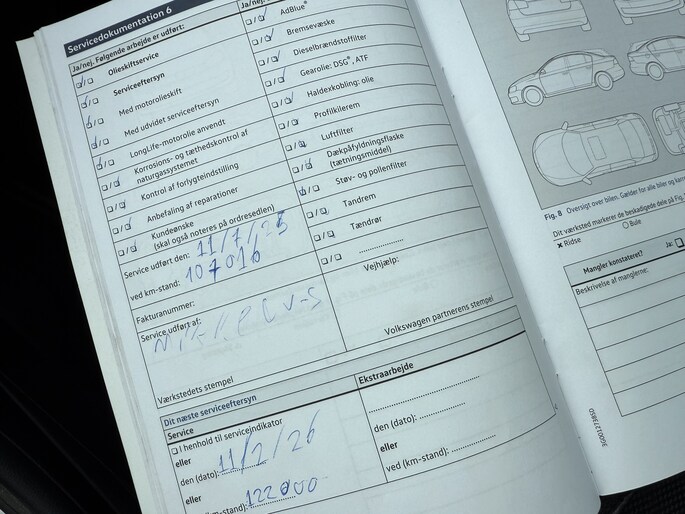 Servicedokumentation 6
Ja/nej. Følgende arbejde er udført:
Olieskiftservice
Serviceeftersyn
Med motorolieskift
Med udvidet serviceeftersyn
LongLife-motorolie anvendt
Korrosions- og tæthedskontrol af
naturgassystemet
Kontrol af forlygteindstilling
Anbefaling af reparationer
Kundeønske
(skal også noteres på ordresedlen)
Service udført den: 11/7/25
ved km-stand: 107016
Fakturanummer:
Service udført af:
Værkstedets stempel
Ja/nej.
AdBlue®
Bremsevæske
Dieselbrændstoffilter
Gearolie: DSG®, ATF
Haldexkobling: olie
Profilkilerem
Luftfilter
Dækpåfyldningsflaske
(tætningsmiddel)
Støv- og pollenfilter
Tandrem
Tændrør
Vejhjælp:
Volkswagen partnerens stempel
Dit næste serviceeftersyn
Service
I henhold til serviceindikator
eller
den (dato): 11/2/26
eller
(km-stand): 122000
Ekstraarbejde
den (dato):
eller
ved (km-stand):
Fig. 8 Oversigt over bilen. Gælder for alle biler og
Dit værksted markerer de beskadigede dele på Fig.
× Ridse
○ Bule
Mangler konstateret?
Ja:
Beskrivelse af manglerne: